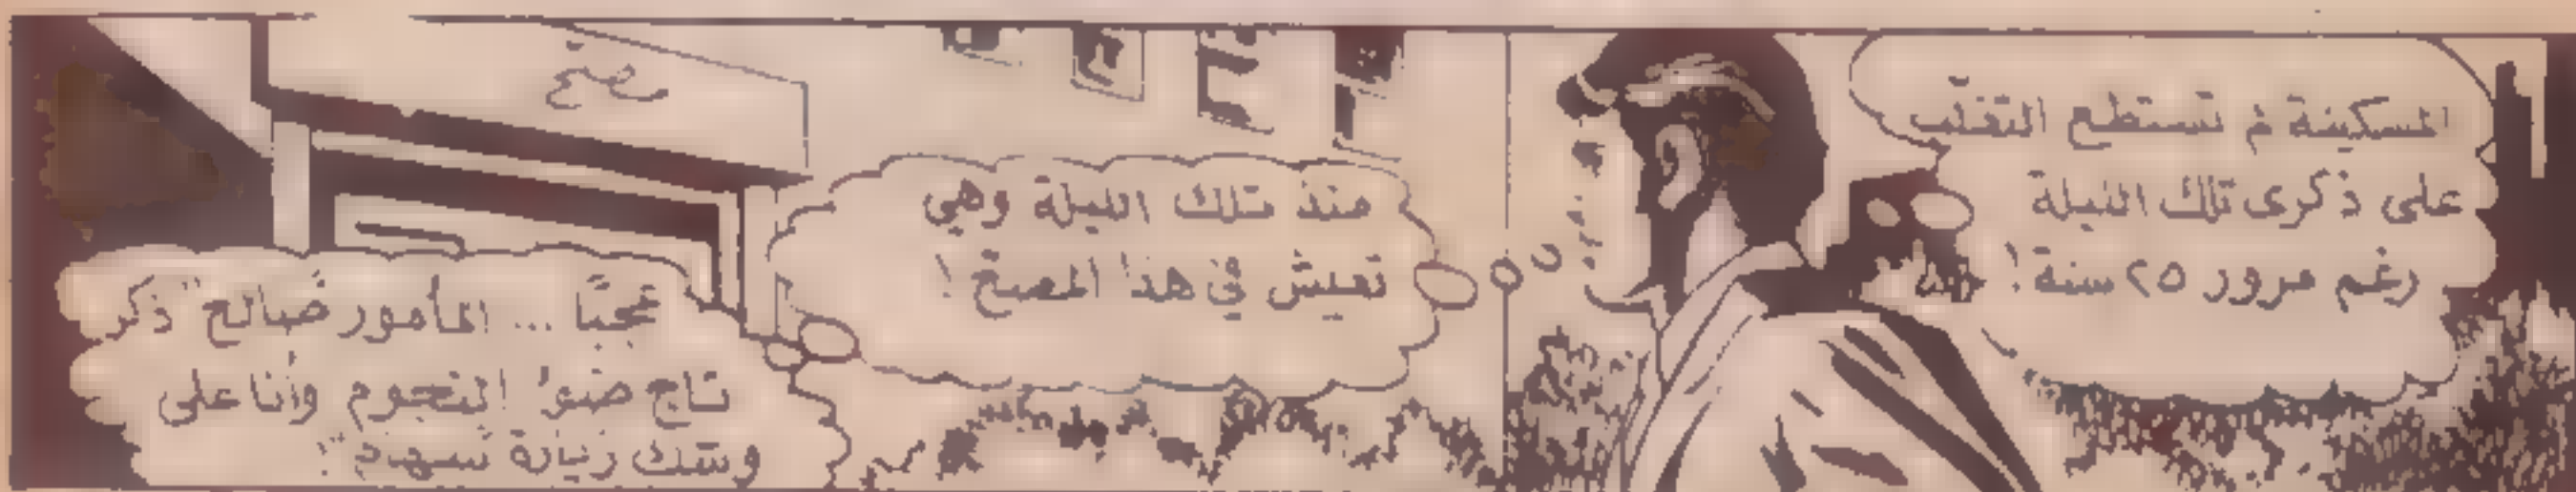 المسكينة لم تستطع التغلّب
على ذكرى تلك الليلة
رغم مرور ٢٥ سنة!
منذ تلك الليلة وهي
تعيش في هذا المصحّ!
مصحّ
عجبًا ... المأمور صالح" ذكر
تاج ضوء النجوم وأنا على
وشك زيارة سهام"!